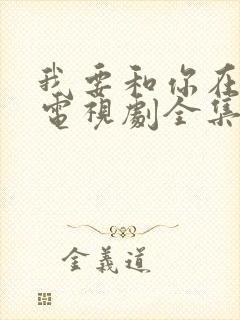 我要和你在
電視劇全集
金義道